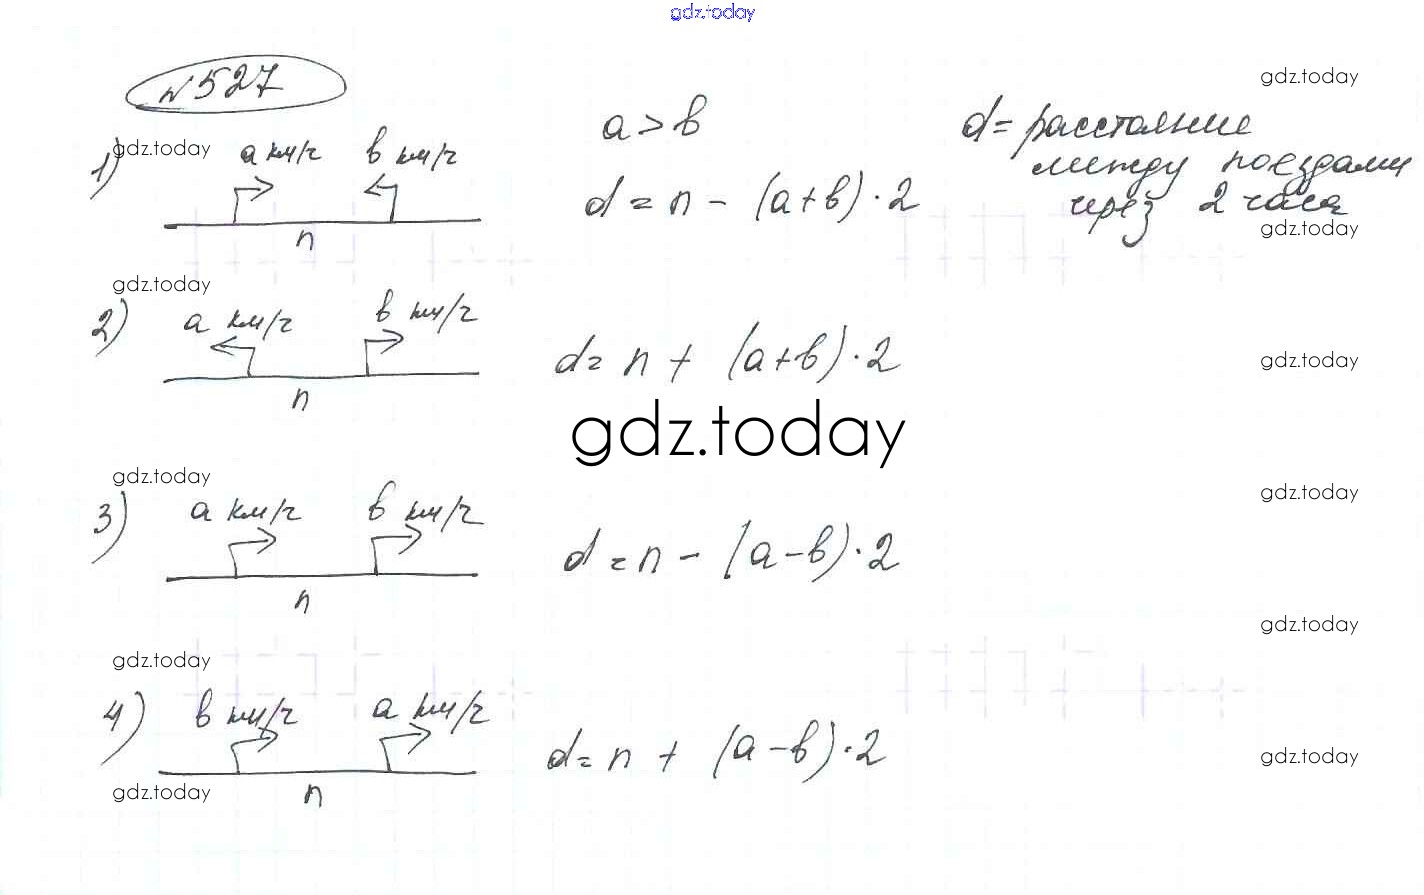 gdz.today
№ 527
gdz.today
a > b
d = расстояние
между поездами
через 2 часа
gdz.today
1) a км/ч b км/ч
d = n - (a+b) · 2
n
gdz.today
gdz.today
2) a км/ч b км/ч
d = n + (a+b) · 2
n
gdz.today
gdz.today
gdz.today
3) a км/ч b км/ч
d = n - (a-b) · 2
n
gdz.today
gdz.today
gdz.today
4) b км/ч a км/ч
d = n + (a-b) · 2
n
gdz.today
gdz.today